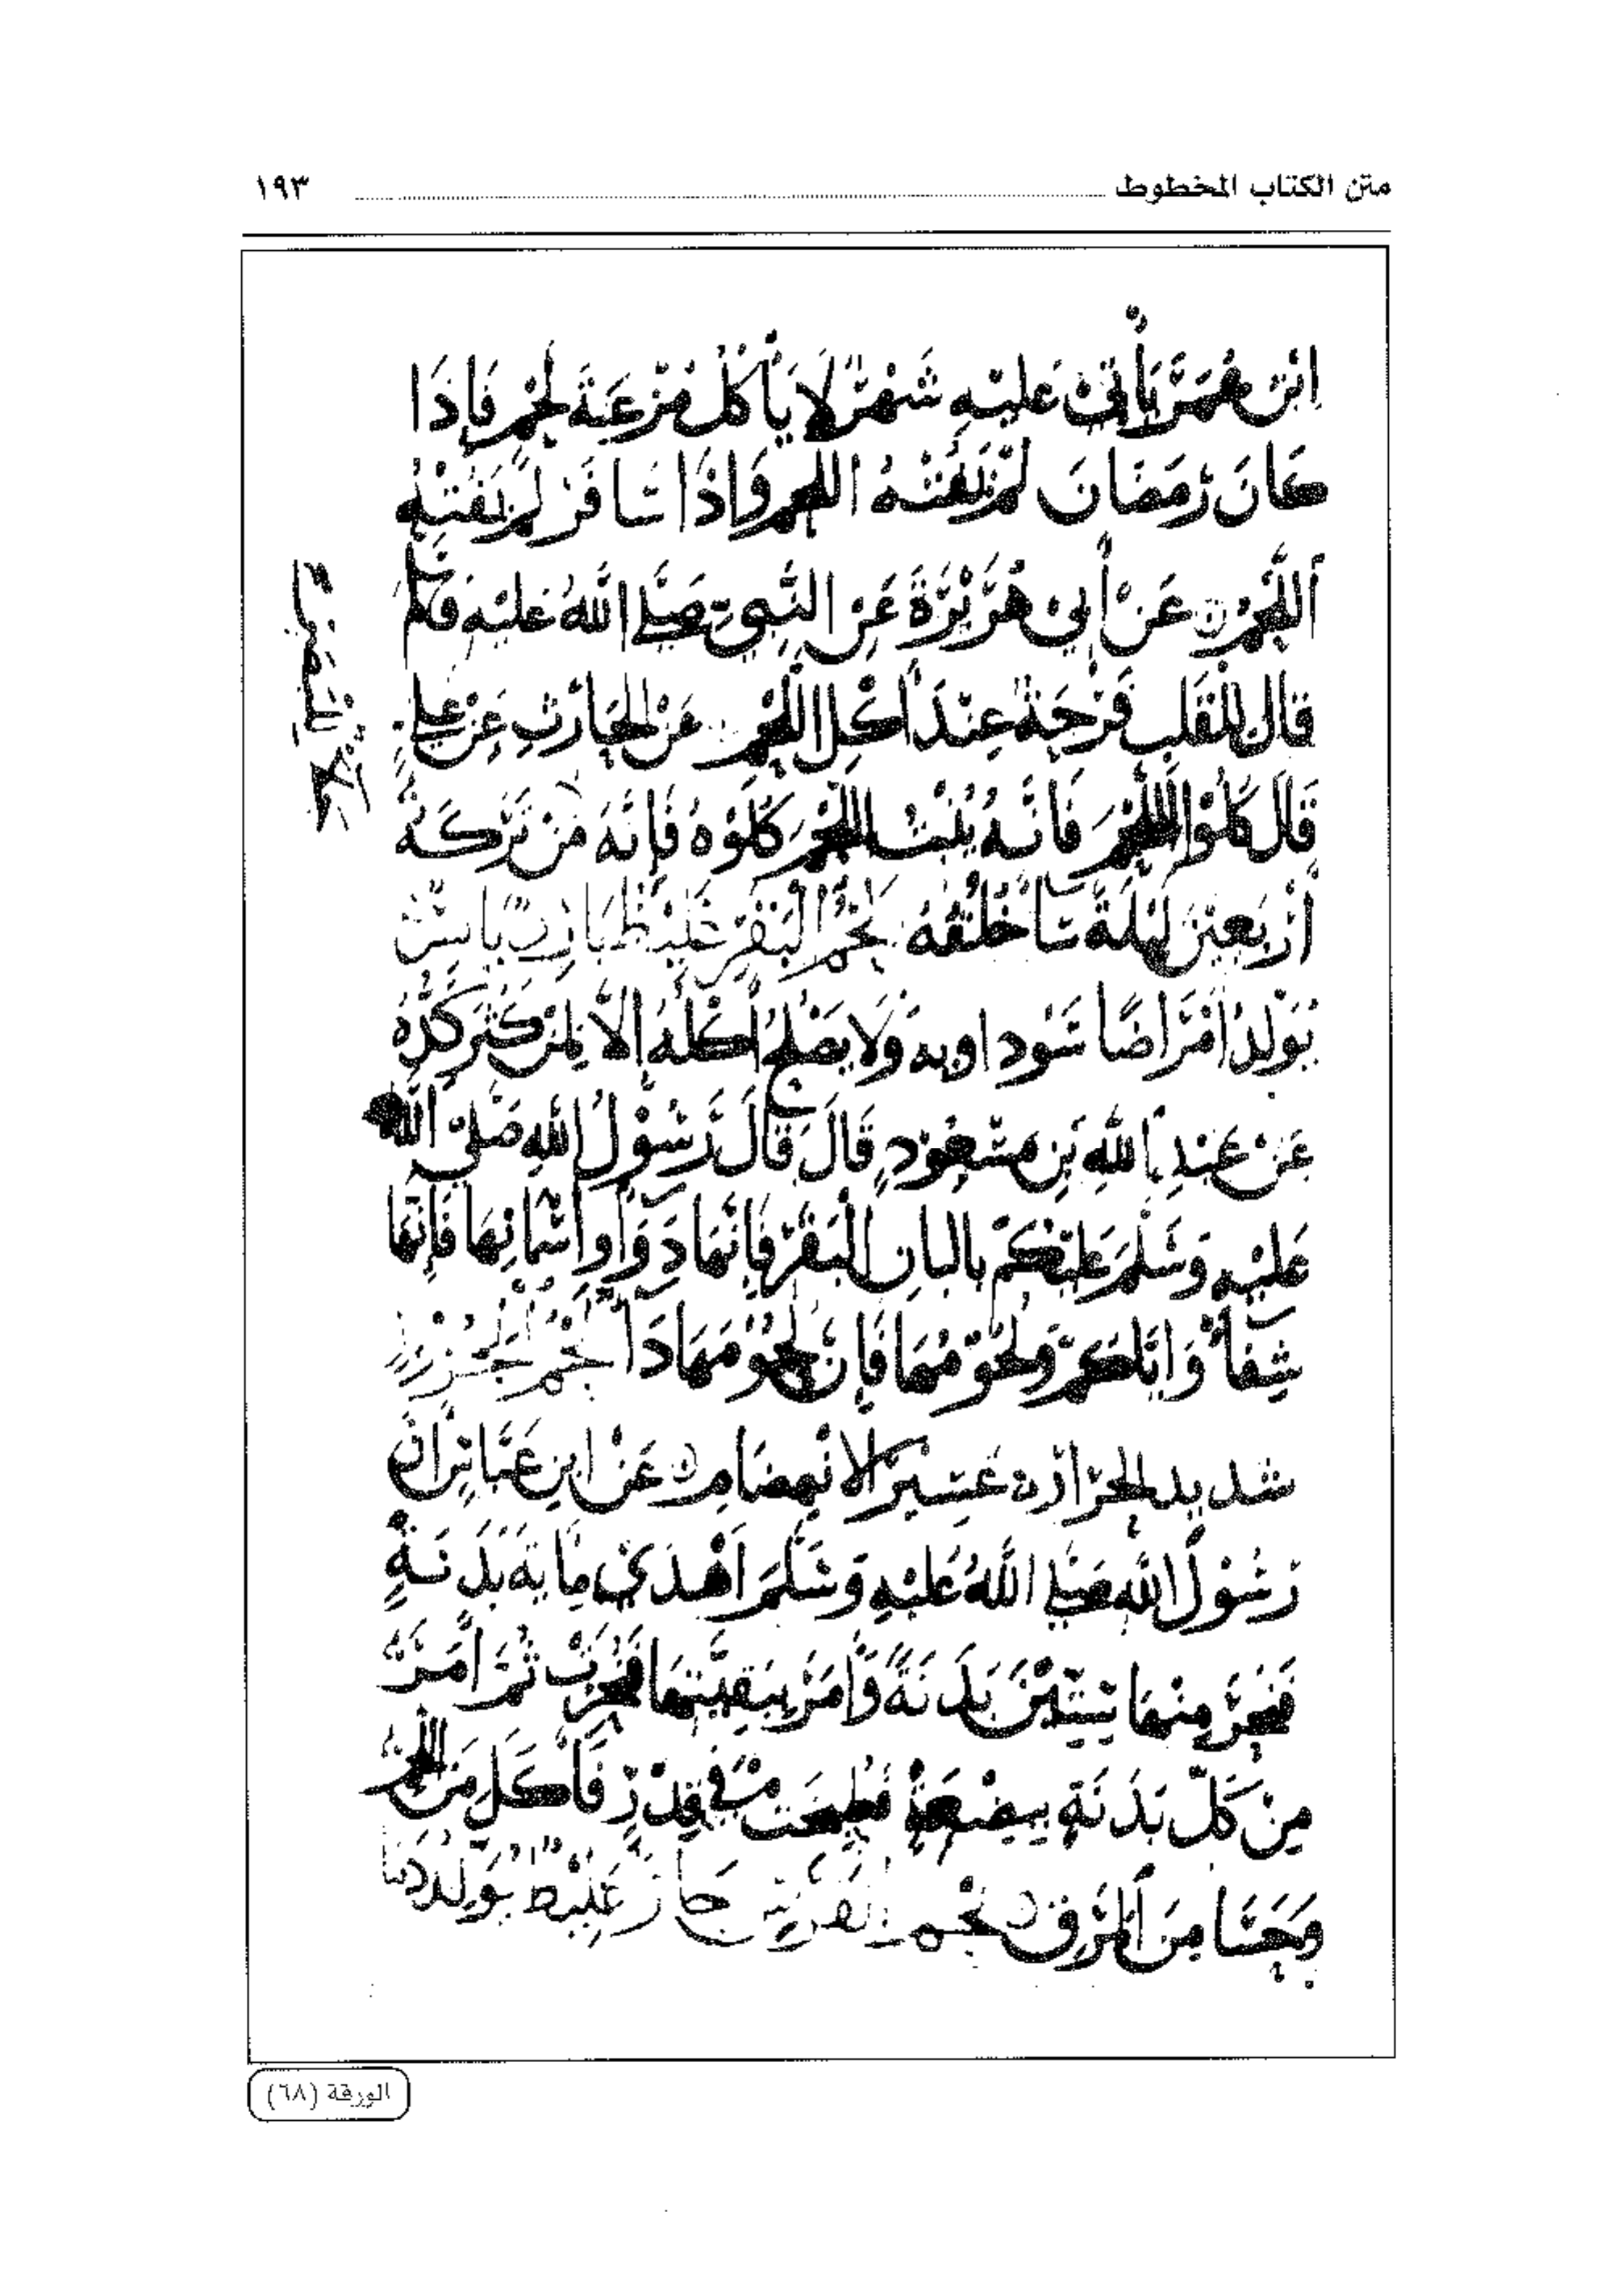 متن الكتاب المخطوط ١٩٣
ابْن عُمَرَ يَأتيْ عَليْهِ شَهْرٌ لَا يَأكُل مُزْعَةَ لَحْمٍ فَإِذَا
كَانَ رَمَضَانَ لَمْ يَفُتْهُ اللحم وَإذَا سَافَرَ لَمْ يَفُتْهُ
اللَّحْمُ عَنْ أَبِي هُرَيْرَةَ عَنِ النَّبِيِّ صَلَّى اللهُ عَليْهِ وَسَلم
قالَ لِلْقَلبِ فَرْحَةٌ عِنْدَ أَكْلِ اللَّحْمِ عَنِ الحَارِثِ عَنْ عَلِي
قَالَ كُلُوْا اللَّحْمَ فَانَّهُ يُنْبِتُ اللَّحْمَ كُلُوْهُ فَإِنَّهُ مَنْ تَرَكَهُ
أَرْبَعِيْنَ لَيْلَةً سَآ خُلُقُهُ لَحْمُ البَقَرِ غَلِيْظ بَارِدٌ يَابِسٌ
يُوَلِّدُ امْرَاضًا سَوْداويه وَلَا يَصْلحُ أَكْلُهُ الَّا لِمَنْ كَثُرَ كَدُّهُ
عَنْ عَبْدِ اللهِ بْنِ مَسْعُوْدٍ قَالَ قَالَ رَسُوْلُ اللهِ صَلَّى اللهُ
عَليْهِ وَسَلَّمَ عَلَيْكُمْ بِالبَانِ البَقَرِ فَإِنَّهَا دَوَآ واسْمَانِهَا فَإِنَّهَا
شِفَآ وَايَّاكُمْ وَلُحُوْمُهَا فَإِنَّ لُحُوْمَهَا دَآ لَحْمُ الجَزُوْرِ
شديد الحَرَارَه عَسِيْرُ الانْهِضَامِ عَنْ ابنِ عَبَّاسٍ انَّ
رَسُوْلَ اللهِ صَلَّى اللهُ عَليْهِ وَسَلَّمَ اهْدَى مِايَةَ بَدَنَةٍ
فَنَحَرَ مِنْهَا سِتِّيْنَ بَدَنَةً وَأَمَرَ بِبَقِيَّتِهَا فَنُحِرَتْ ثُمَّ أَمَرَ
مِنْ كُلِّ بَدَنَةٍ بِبِضْعَةٍ فَطُبِخَتْ فِي قِدْرٍ فَأَكَلَ مِنَ اللَّحْمِ
وَحَسَا مِنَ المَرَقِ لَحْمُ الفَرَسِ حَارٌّ غَلِيْظٌ يُوَلِّد دمًا
الورقة (٦٨)